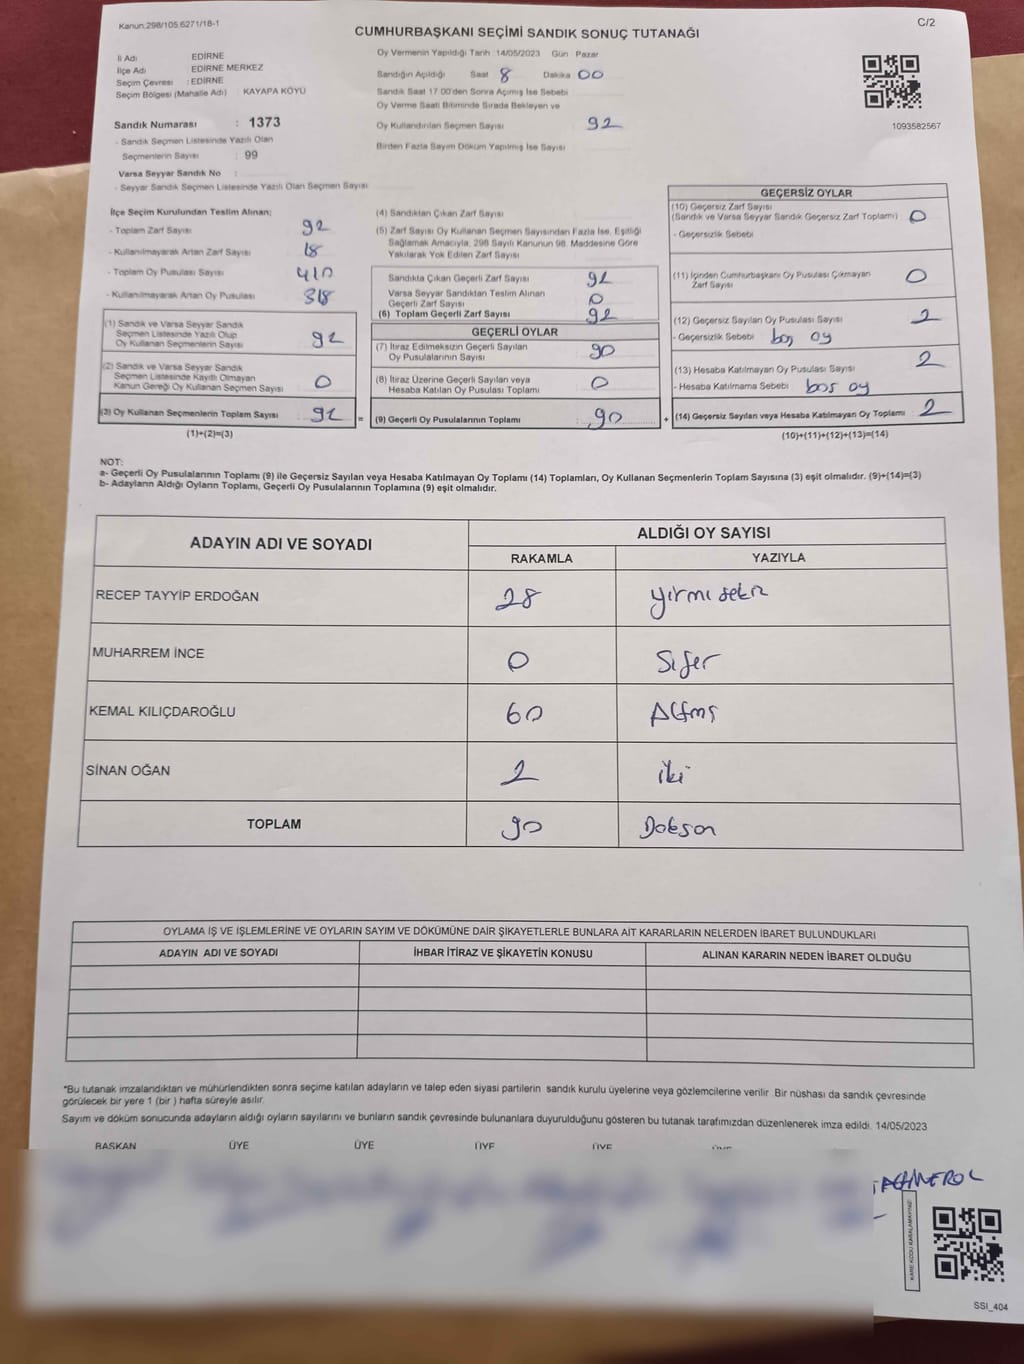 Kanun:298/105.6271/18-1
C/2
CUMHURBAŞKANI SEÇİMİ SANDIK SONUÇ TUTANAĞI
İl Adı EDİRNE
İlçe Adı EDİRNE MERKEZ
Seçim Çevresi : EDİRNE
Seçim Bölgesi (Mahalle Adı) : KAYAPA KÖYÜ
Sandık Numarası : 1373
- Sandık Seçmen Listesinde Yazılı Olan
Seçmenlerin Sayısı : 99
Varsa Seyyar Sandık No :
- Seyyar Sandık Seçmen Listesinde Yazılı Olan Seçmen Sayısı
Oy Vermenin Yapıldığı Tarih 14/05/2023 Gün Pazar
Sandığın Açıldığı Saat 8 Dakika 00
Sandık Saat 17:00'den Sonra Açmış İse Sebebi
Oy Verme Saati Bitiminde Sırada Bekleyen ve
Oy Kullandırılan Seçmen Sayısı 92
Birden Fazla Sayım Döküm Yapılmış İse Sayısı
1093582567
İlçe Seçim Kurulundan Teslim Alınan;
- Toplam Zarf Sayısı 92
- Kullanılmayarak Artan Zarf Sayısı 18
- Toplam Oy Pusulası Sayısı 410
- Kullanılmayarak Artan Oy Pusulası 318
(1) Sandık ve Varsa Seyyar Sandık
Seçmen Listesinde Yazılı Olup
Oy Kullanan Seçmenlerin Sayısı 92
(2) Sandık ve Varsa Seyyar Sandık
Seçmen Listesinde Kayıtlı Olmayan
Kanun Gereği Oy Kullanan Seçmen Sayısı 0
(3) Oy Kullanan Seçmenlerin Toplam Sayısı 92 =
(1)+(2)=(3)
(4) Sandıktan Çıkan Zarf Sayısı
(5) Zarf Sayısı Oy Kullanan Seçmen Sayısından Fazla İse, Eşitliği
Sağlamak Amacıyla, 298 Sayılı Kanunun 98. Maddesine Göre
Yakılarak Yok Edilen Zarf Sayısı
Sandıkta Çıkan Geçerli Zarf Sayısı 92
Varsa Seyyar Sandıktan Teslim Alınan
Geçerli Zarf Sayısı 0
(6) Toplam Geçerli Zarf Sayısı 92
GEÇERLİ OYLAR
(7) İtiraz Edilmeksizin Geçerli Sayılan
Oy Pusulalarının Sayısı 90
(8) İtiraz Üzerine Geçerli Sayılan veya
Hesaba Katılan Oy Pusulası Toplamı 0
(9) Geçerli Oy Pusulalarının Toplamı 90 +
GEÇERSİZ OYLAR
(10) Geçersiz Zarf Sayısı
(Sandık ve Varsa Seyyar Sandık Geçersiz Zarf Toplamı) 0
- Geçersizlik Sebebi
(11) İçinden Cumhurbaşkanı Oy Pusulası Çıkmayan
Zarf Sayısı 0
(12) Geçersiz Sayılan Oy Pusulası Sayısı 2
- Geçersizlik Sebebi boş oy
(13) Hesaba Katılmayan Oy Pusulası Sayısı 2
- Hesaba Katılmama Sebebi boş oy
(14) Geçersiz Sayılan veya Hesaba Katılmayan Oy Toplamı 2
(10)+(11)+(12)+(13)=(14)
NOT:
a- Geçerli Oy Pusulalarının Toplamı (9) ile Geçersiz Sayılan veya Hesaba Katılmayan Oy Toplamı (14) Toplamları, Oy Kullanan Seçmenlerin Toplam Sayısına (3) eşit olmalıdır. (9)+(14)=(3)
b- Adayların Aldığı Oyların Toplamı, Geçerli Oy Pusulalarının Toplamına (9) eşit olmalıdır.
ADAYIN ADI VE SOYADI ALDIĞI OY SAYISI
RAKAMLA YAZIYLA
RECEP TAYYİP ERDOĞAN 28 yirmi sekiz
MUHARREM İNCE 0 Sıfır
KEMAL KILIÇDAROĞLU 60 Altmış
SİNAN OĞAN 2 iki
TOPLAM 90 Doksan
OYLAMA İŞ VE İŞLEMLERİNE VE OYLARIN SAYIM VE DÖKÜMÜNE DAİR ŞİKAYETLERLE BUNLARA AİT KARARLARIN NELERDEN İBARET BULUNDUKLARI
ADAYIN ADI VE SOYADI İHBAR İTİRAZ VE ŞİKAYETİN KONUSU ALINAN KARARIN NEDEN İBARET OLDUĞU
*Bu tutanak imzalandıktan ve mühürlendikten sonra seçime katılan adayların ve talep eden siyasi partilerin sandık kurulu üyelerine veya gözlemcilerine verilir. Bir nüshası da sandık çevresinde
görülecek bir yere 1 (bir ) hafta süreyle asılır.
Sayım ve döküm sonucunda adayların aldığı oyların sayılarını ve bunların sandık çevresinde bulunanlara duyurulduğunu gösteren bu tutanak tarafımızdan düzenlenerek imza edildi. 14/05/2023
BAŞKAN ÜYE ÜYE ÜYE ÜYE
KARE KODU KARALAMAYINIZ!
SSI_404